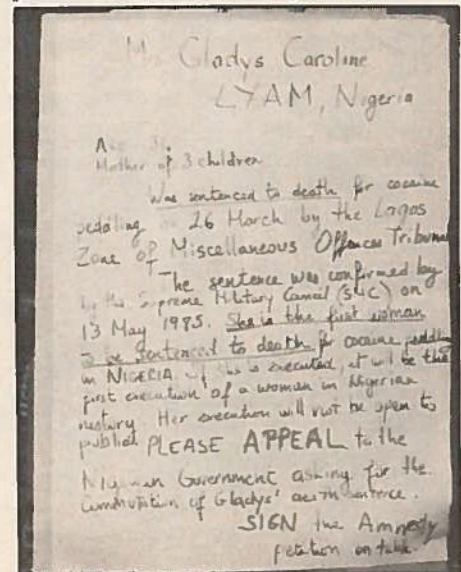 Gladys Caroline
LYAM, Nigeria
Mother of 3 children
Was sentenced to death for cocaine
pedaling 26 March by the Lagos
Zone of Miscellaneous Offences Tribunal
The sentence was confirmed by
the Supreme Military Council (SMC) on
13 May 1985. She is the first woman
to be sentenced to death for cocaine
in NIGERIA if she is executed, it will be the
first execution of a woman in Nigerian
history. Her execution will not be open to
public PLEASE APPEAL to the
Nigerian Government asking for the
commutation of Gladys' death sentence.
SIGN the Amnesty
petition on table.